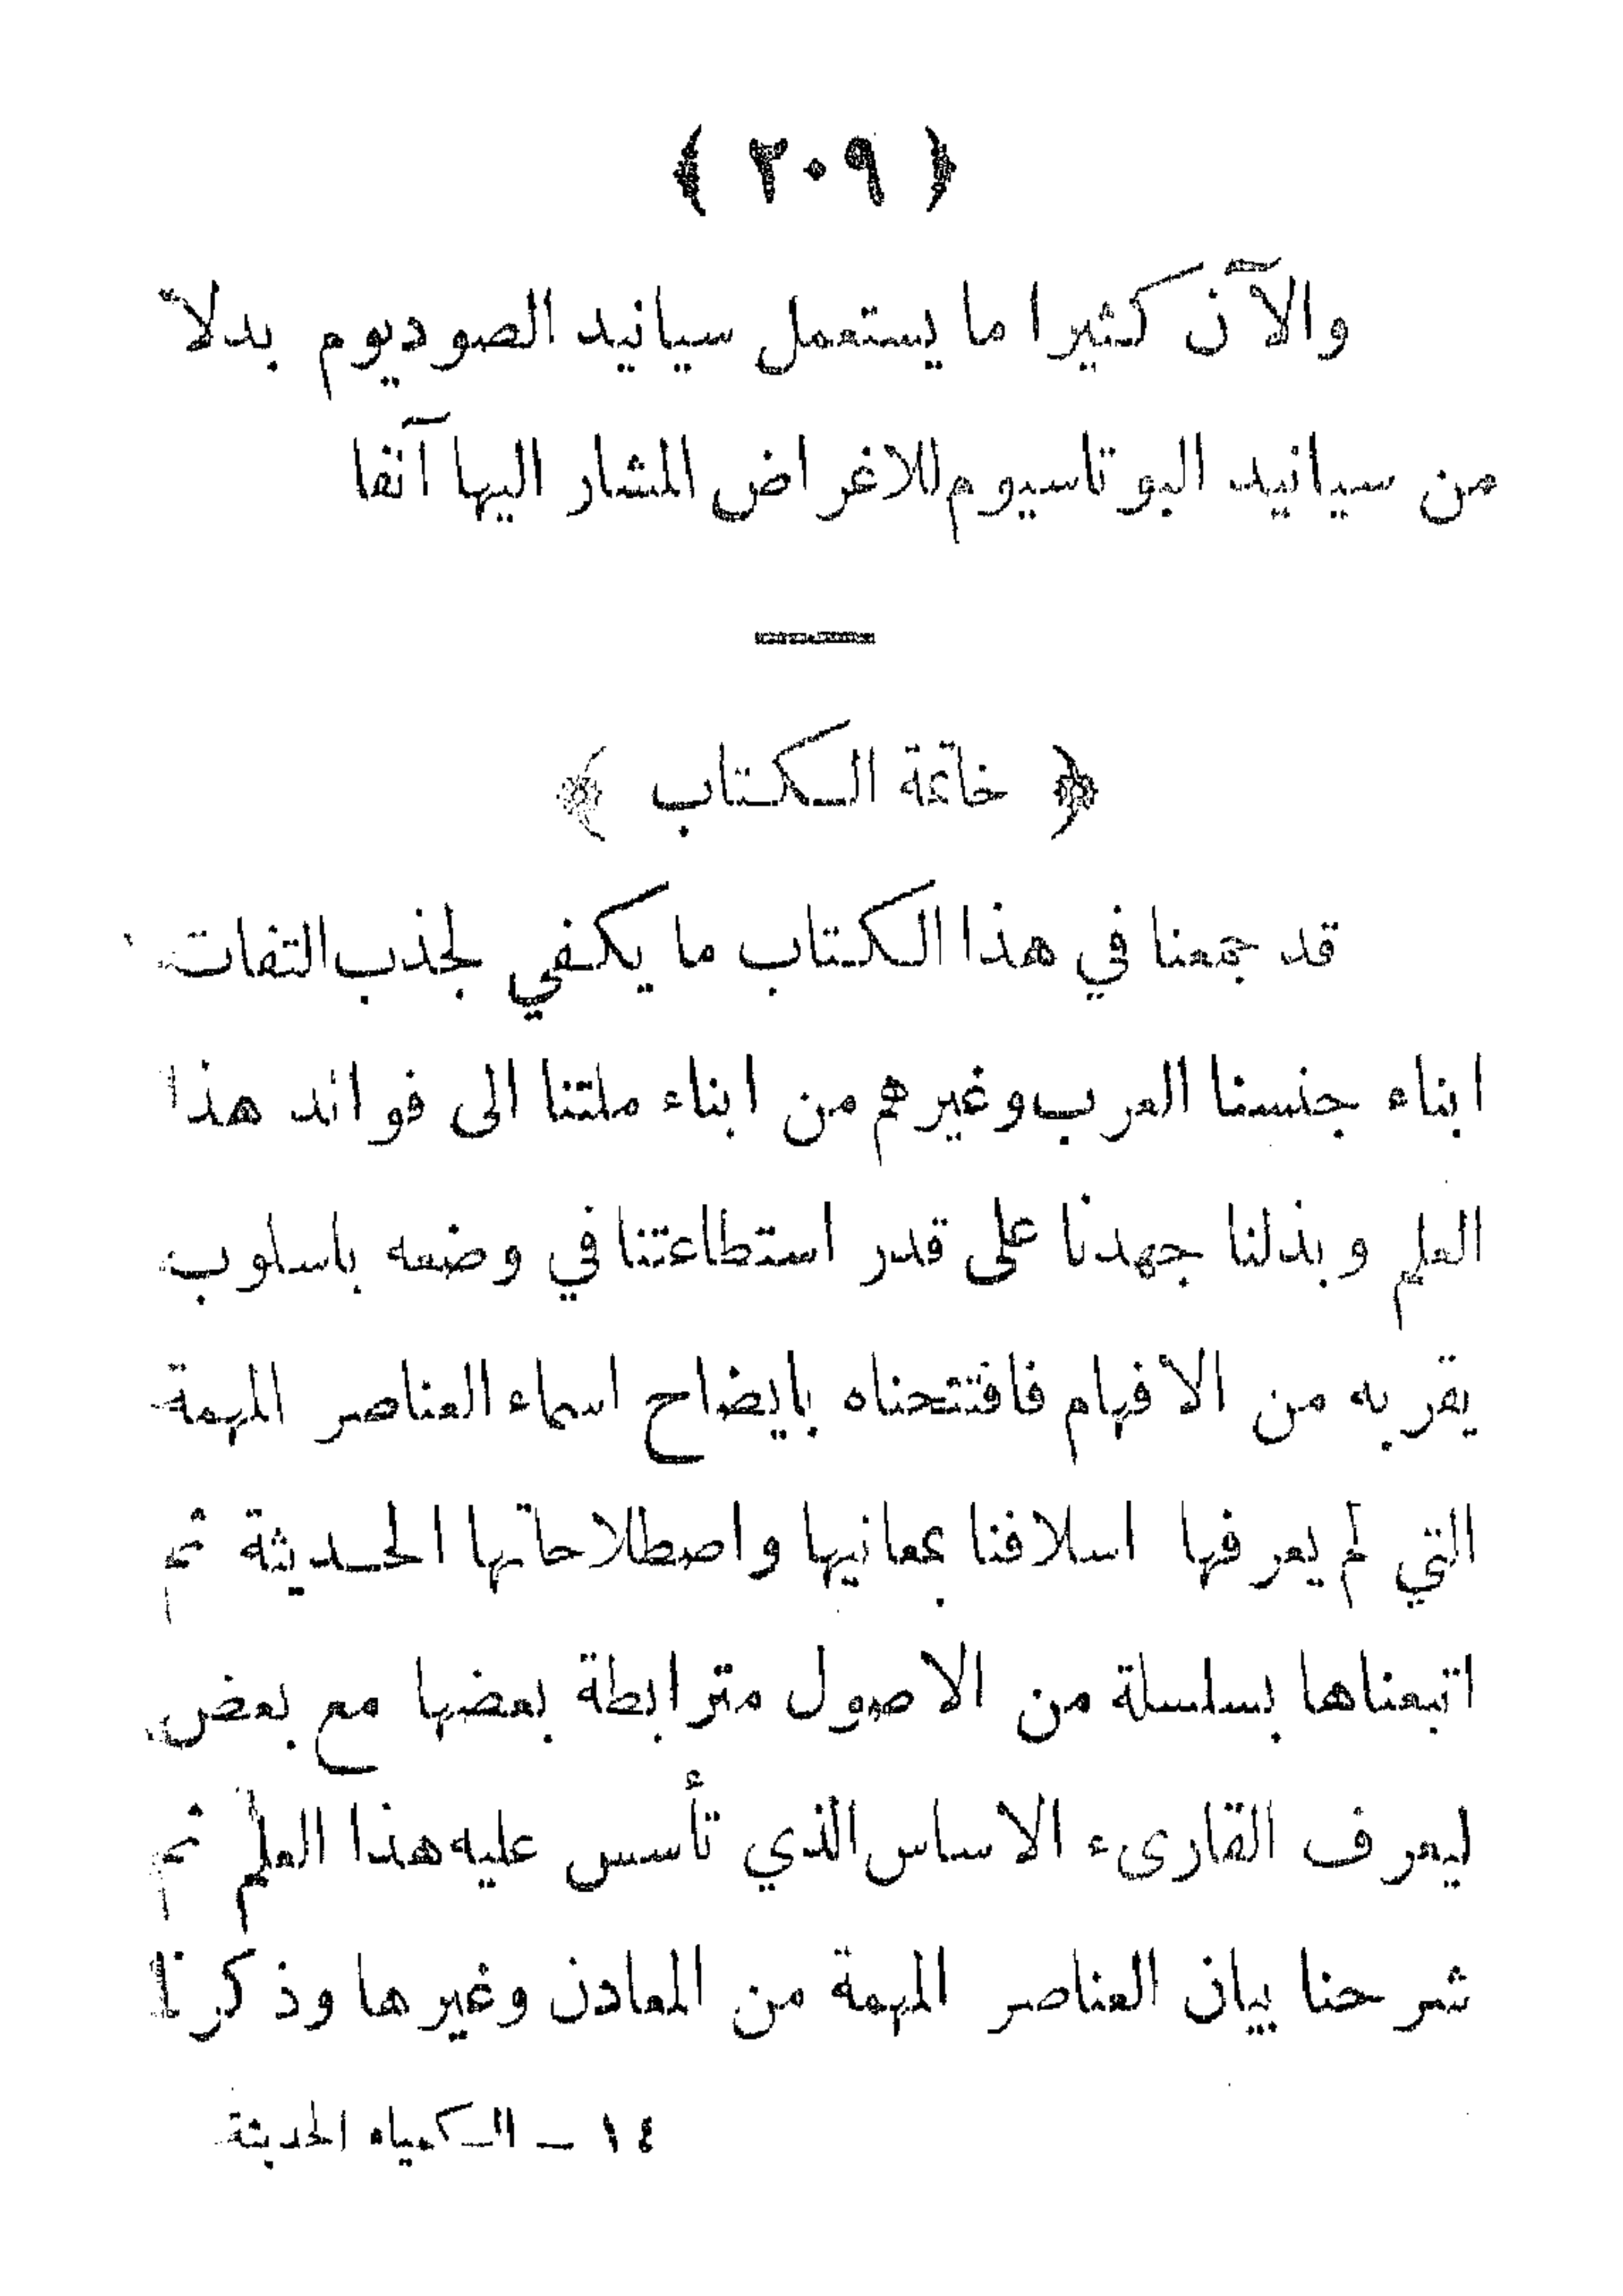 ﴿ ٢٠٩ ﴾
والآن كثيرا ما يستعمل سيانيد الصوديوم بدلا
من سيانيد البوتاسيوم للاغراض المشار اليها آنفا
﴿ خاتمة الكتاب ﴾
قد جمعنا في هذا الكتاب ما يكفي لجذب التفات
ابناء جنسنا العرب وغيرهم من ابناء ملتنا الى فوائد هذا
العلم وبذلنا جهدنا على قدر استطاعتنا في وضعه باسلوب
يقربه من الافهام فافتتحناه بايضاح اسماء العناصر المهمة
التي لم يعرفها اسلافنا بمعانيها واصطلاحاتها الحديثة ثم
اتبعناها بسلسلة من الاصول مترابطة بعضها مع بعض
ليعرف القارىء الاساس الذي تأسس عليه هذا العلم ثم
شرحنا بيان العناصر المهمة من المعادن وغيرها وذكرنا
١٤ ــ الكمياء الحديثة